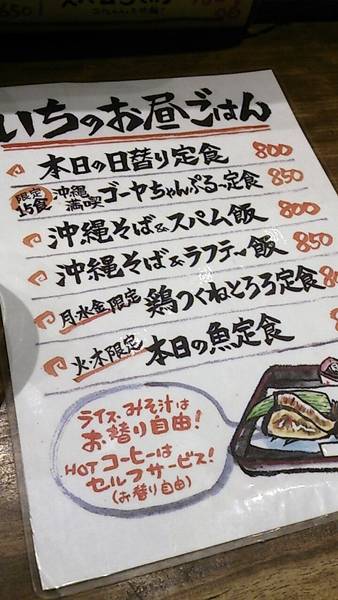 いちのお昼ごはん
本日の日替り定食 800
限定15食 沖縄満喫 ゴーヤちゃんぷる〜定食 850
沖縄そば&スパム飯 800
沖縄そば&ラフテ〜飯 850
月水金限定 鶏つくねとろろ定食
火木限定 本日の魚定食
ライス、みそ汁は
お替り自由!
HOTコーヒーは
セルフサービス!
(お替り自由)